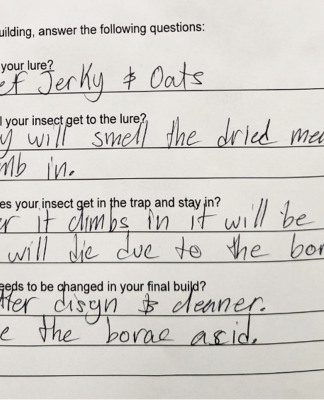 uilding, answer the following questions:
your lure?
ef Jerky & Oats
l your insect get to the lure?
y will smell the dried mea
mb in.
es your insect get in the trap and stay in?
r it climbs in it will be
will die due to the bor
eeds to be changed in your final build?
tter disgn & cleaner.
e the borac asid.